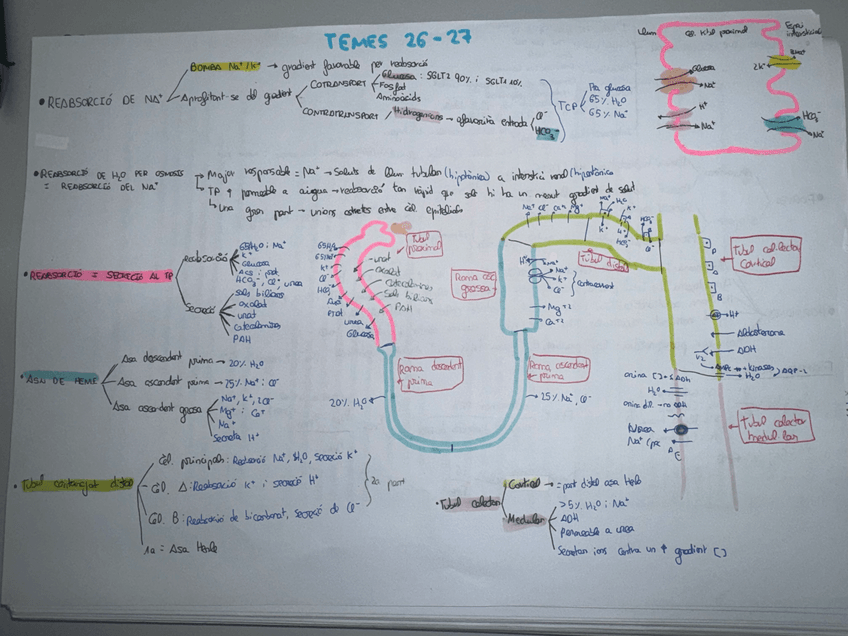 TEMES 26-27
BOMBA Na⁺/K⁺ → gradient favorable per reabsorció
• REABSORCIÓ DE Na⁺
Aprofitant-se del gradient
COTRANSPORT
Glucosa: SGLT2 90% i SGLT1 10%
Fosfat
Aminoàcids
CONTRATRANSPORT
Hidrogenions → afavorita entrada
Cl⁻
HCO₃⁻
TCP
Pta glucosa
65% H₂O
65% Na⁺
llum
Cèl. túbul proximal
Espai intersticial
Glucosa
Na⁺
H⁺
Na⁺
2K⁺
HCO₃⁻
Na⁺
• REABSORCIÓ DE H₂O PER OSMOSIS
= REABSORCIÓ DEL Na⁺
→ Major responsable = Na⁺ → Soluts de llum tubular (hipotònica) a interstici renal (hipertònica)
→ TP ↑ permeable a aigua → reabsorció tan ràpid que sols hi ha un menut gradient de solut
→ Una gran part → unions estretes entre cèl. epitelials
• REABSORCIÓ = SECRECIÓ AL TP
Reabsorció
65% H₂O i Na⁺
K⁺
Glucosa
HCO₃⁻, Cl⁻, urea
Secreció
sals biliares
oxalat
urat
catecolamines
PAH
65% Na⁺
K⁺
Cl⁻
HCO₃⁻
Prot
urea
Glucosa
urat
oxalat
catecolamines
Sals biliares
PAH
Túbul proximal
Rama asc grossa
Rama descendent prima
Rama ascendent prima
20% H₂O
25% Na⁺, Cl⁻
H⁺
Na⁺
K⁺
Cl⁻
Mg⁺²
Ca⁺²
Túbul distal
Na⁺ Cl⁻ Ca⁺² Mg⁺
Túbul col·lector Cortical
P
A
B
H⁺
Aldosterona
ADH
V2
H₂O
AQP-2
orina [] = ↑ ADH
H₂O
orina dil → no ADH
Urea
Na⁺
Túbul colector medul·lar
• ASA DE HENLE
Asa descendent prima → 20% H₂O
Asa ascendent prima → 25% Na⁺ i Cl⁻
Asa ascendent grossa
Na⁺, K⁺, 2Cl⁻
Mg⁺ i Ca⁺
Na⁺
Secreta H⁺
• Túbul contornejat distal
Cèl. principals: Reabsorció Na⁺, H₂O, secreció K⁺
Cèl. A: Reabsorció K⁺ i secreció H⁺
Cèl. B: Reabsorció de bicarbonat, secreció de Cl⁻
2a part
1a = Asa Henle
• Túbul colector
Cortical → = part distal asa Henle
Medular
>5% H₂O i Na⁺
ADH
Permeable a urea
Secretan ions contra un ↑ gradient []